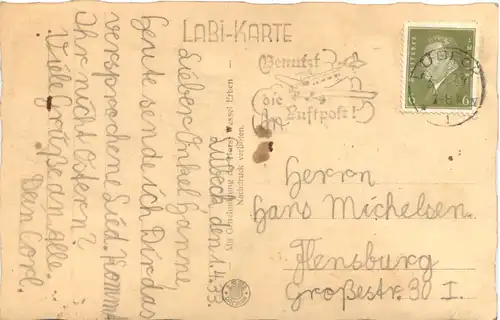 LaBi-KARTE
Lübeck, den 1.4.33.
Lieber Onkel Hanne,
Heute sende ich Dir das
versprochene Lied. Kommt
Ihr nicht Ostern?
Viele Grüße an Alle.
Dein Carl.
Mit Genehmigung des Horst Wessel Erben
Nachdruck verboten.
Benutzt
die
Luftpost!
6
Herrn
Hans Michelsen.
Flensburg
Großestr. 30 I.